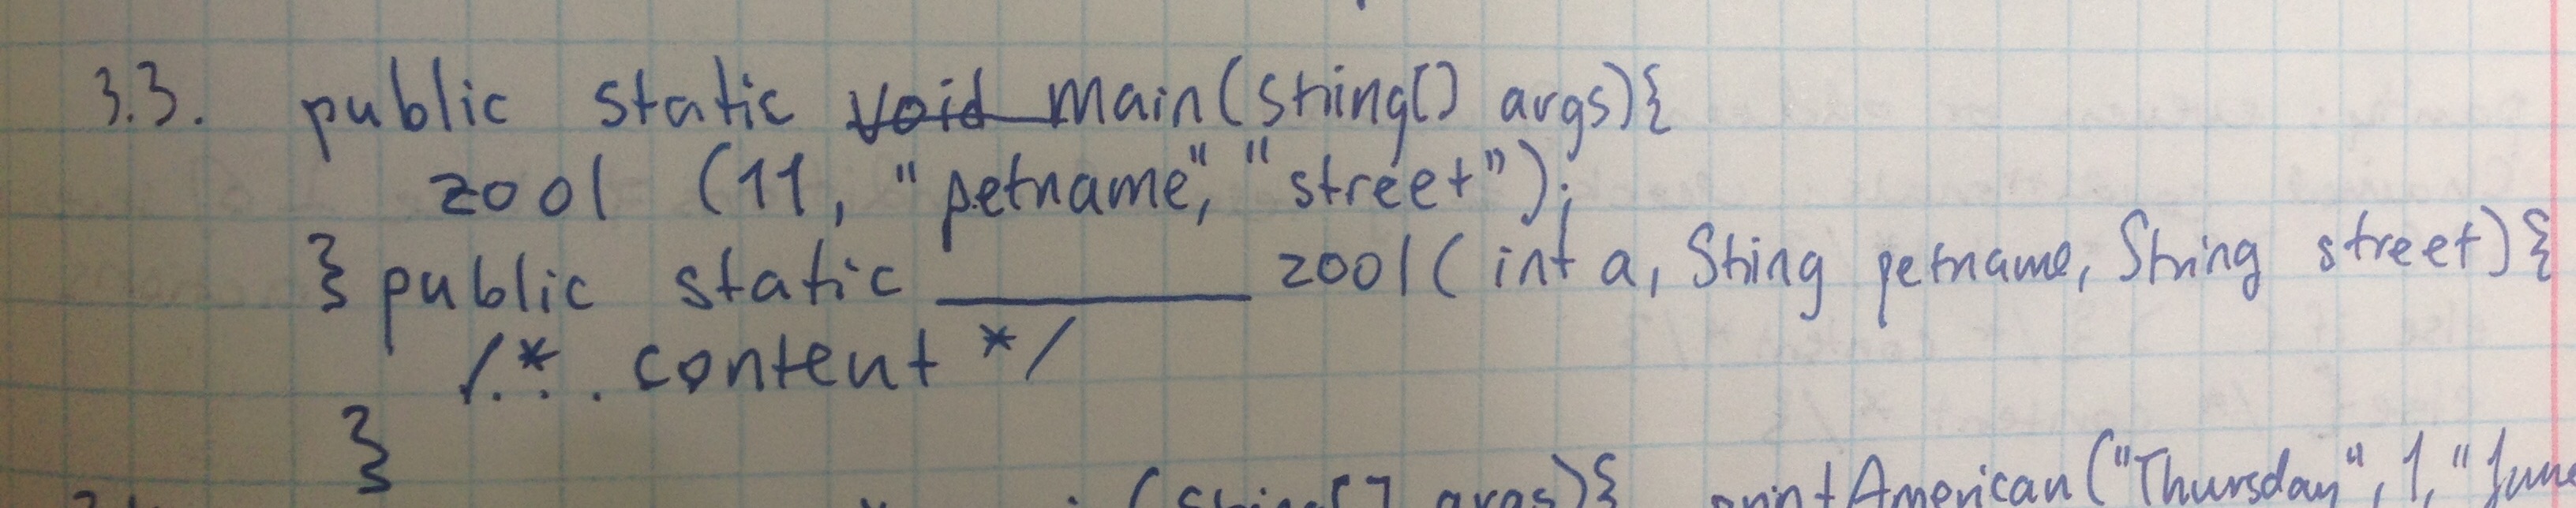 3.3. public static void main(String[] args){
zool (11, "petname", "street");
} public static ________ zool( int a, String petname, String street){
/*... content */
}
(String[] args){ printAmerican("Thursday", 1, "June